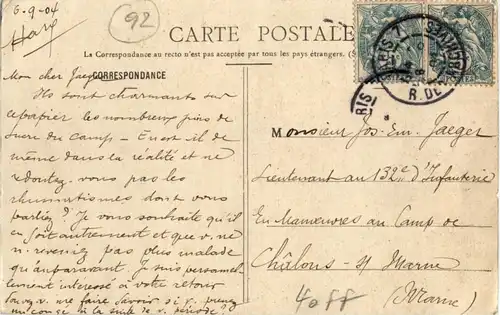 6-9-04
92
CARTE POSTALE
La Correspondance au recto n'est pas acceptée par tous les pays étrangers.
CORRESPONDANCE
Mon cher
Ils sont charmants sur
le papier les nombreux pins de
sucre du Camp - En est il de
même dans la réalité et ne
redoutez vous pas les
rhumatismes dont vous
parliez? Je vous souhaite qu'il
en soit autrement et que v. ne
n. reveniez pas plus malade
qu'auparavant. Je suis personnel-
lement intéressé à votre retour
me faire savoir si v. prenez
si la suite de v. période?
PARIS 7
R. DE
Monsieur Jos-Em. Jaeger
Lieutenant au 132e d'Infanterie
En Manœuvres au Camp de
Châlons - s/ Marne
(Marne)